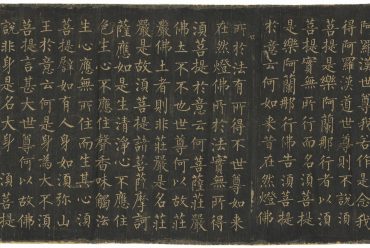 阿羅漢世尊我若作是念我
得阿羅漢道世尊則不說須
菩提是樂阿蘭那行者以須
菩提實無所行而名須菩提
是樂阿蘭那行佛告須菩提
於意云何如來昔在然燈佛
所於法有所得不世尊如來
在然燈佛所於法實無所得
須菩提於意云何菩薩莊嚴
佛土不不也世尊何以故莊
嚴佛土者則非莊嚴是名莊
嚴是故須菩提諸菩薩摩訶
薩應如是生清淨心不應住
色生心不應住聲香味觸法
生心應無所住而生其心須
菩提譬如有人身如須彌山
王於意云何是身為大不須
菩提言甚大世尊何以故佛
說非身是名大身 須菩提